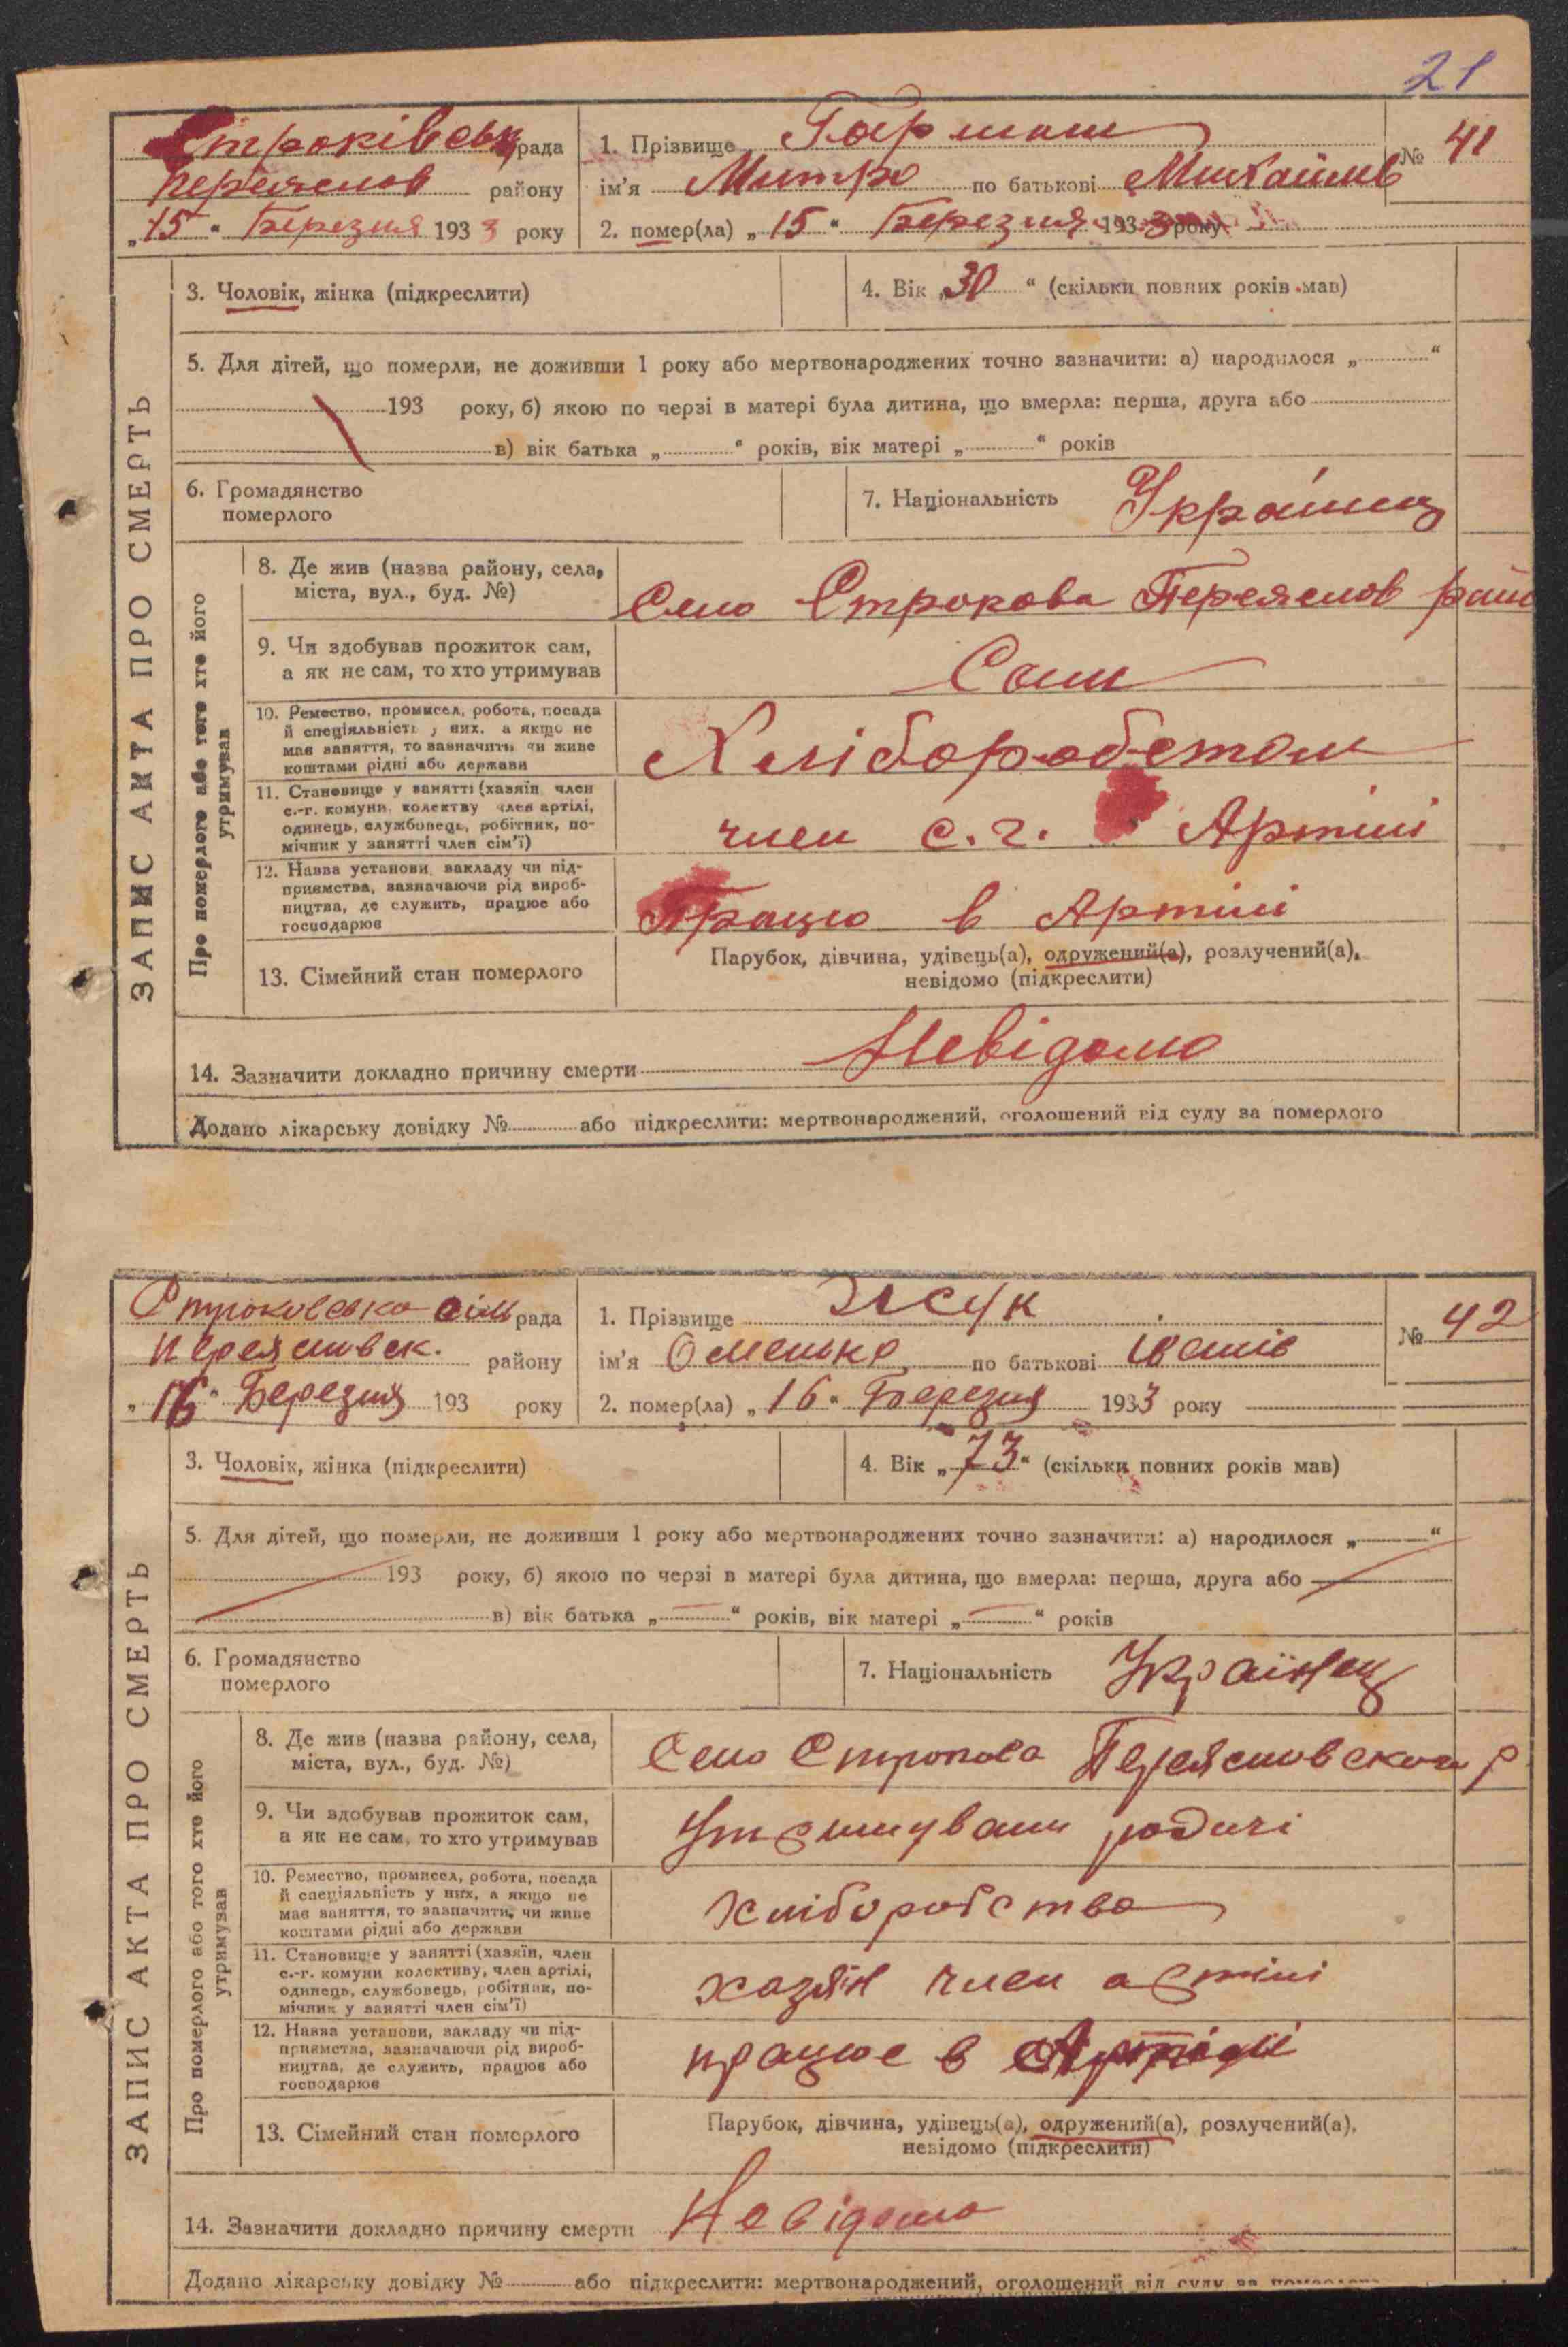 21
Строківськ рада
Переяслов району
„15“ Березня 1933 року
1. Прізвище Гармаш
№ 41
ім'я Митро по батькові Михайлів
2. помер(ла) „15“ Березня 1933 року
ЗАПИС АКТА ПРО СМЕРТЬ
3. Чоловік, жінка (підкреслити)
4. Вік „30“ (скільки повних років мав)
5. Для дітей, що померли, не доживши 1 року або мертвонароджених точно вазначити: а) народилося „ “
193 року, б) якою по черзі в матері була дитина, що вмерла: перша, друга або
в) вік батька „ “ років, вік матері „ “ років
6. Громадянство
померлого
7. Національність Українец
Про померлого або того хто його
утримував
8. Де жив (назва району, села,
міста, вул., буд. №)
Село Строкова Переяслов рай
9. Чи здобував прожиток сам,
а як не сам, то хто утримував
Сам
10. Ремество, промисел, робота, посада
й спеціяльність у них, а якщо не
мав заняття, то вазначити чи живе
коштами рідні або держави
Хліборобством
11. Становище у занятті (хазяїн член
с.-г. комуни, колективу член артілі,
одинець, службовець, робітник, по-
мічник у занятті член сім'ї)
член с.г. Артілі
12. Назва установи, закладу чи під-
приємства, вазначаючи рід вироб-
ництва, де служить, працює або
господарює
Працю в Артілі
13. Сімейний стан померлого
Парубок, дівчина, удівець(а), одружений(а), розлучений(а),
невідомо (підкреслити)
14. Зазначити докладно причину смерти Невідомо
Додано лікарську довідку № або підкреслити: мертвонароджений, оголошений від суду за померлого
Строковська сіль рада
Переясловск. району
„16“ Березня 193 року
1. Прізвище Жук
№ 42
ім'я Омелько по батькові Іванів
2. помер(ла) „16“ Березня 1933 року
ЗАПИС АКТА ПРО СМЕРТЬ
3. Чоловік, жінка (підкреслити)
4. Вік „73“ (скільки повних років мав)
5. Для дітей, що померли, не доживши 1 року або мертвонароджених точно зазначити: а) народилося „ “
193 року, б) якою по черзі в матері була дитина, що вмерла: перша, друга або
в) вік батька „ “ років, вік матері „ “ років
6. Громадянство
померлого
7. Національність Українец
Про померлого або того хто його
утримував
8. Де жив (назва району, села,
міста, вул., буд. №)
Село Строкова Переясловского р
9. Чи здобував прожиток сам,
а як не сам, то хто утримував
Утримували родичі
10. Ремество, промисел, робота, посада
й спеціяльність у них, а якщо не
мав заняття, то зазначити, чи живе
коштами рідні або держави
хліборобство
11. Становище у занятті (хазяїн, член
с.-г. комуни колективу, член артілі,
одинець, службовець, робітник, по-
мічник у занятті член сім'ї)
хазяїн член артілі
12. Назва установи, закладу чи під-
приємства, вазначаючи рід вироб-
ництва, де служить, працює або
господарює
працює в Артілі
13. Сімейний стан померлого
Парубок, дівчина, удівець(а), одружений(а), розлучений(а),
невідомо (підкреслити)
14. Зазначити докладно причину смерти Невідомо
Додано лікарську довідку № або підкреслити: мертвонароджений, оголошений від суду за